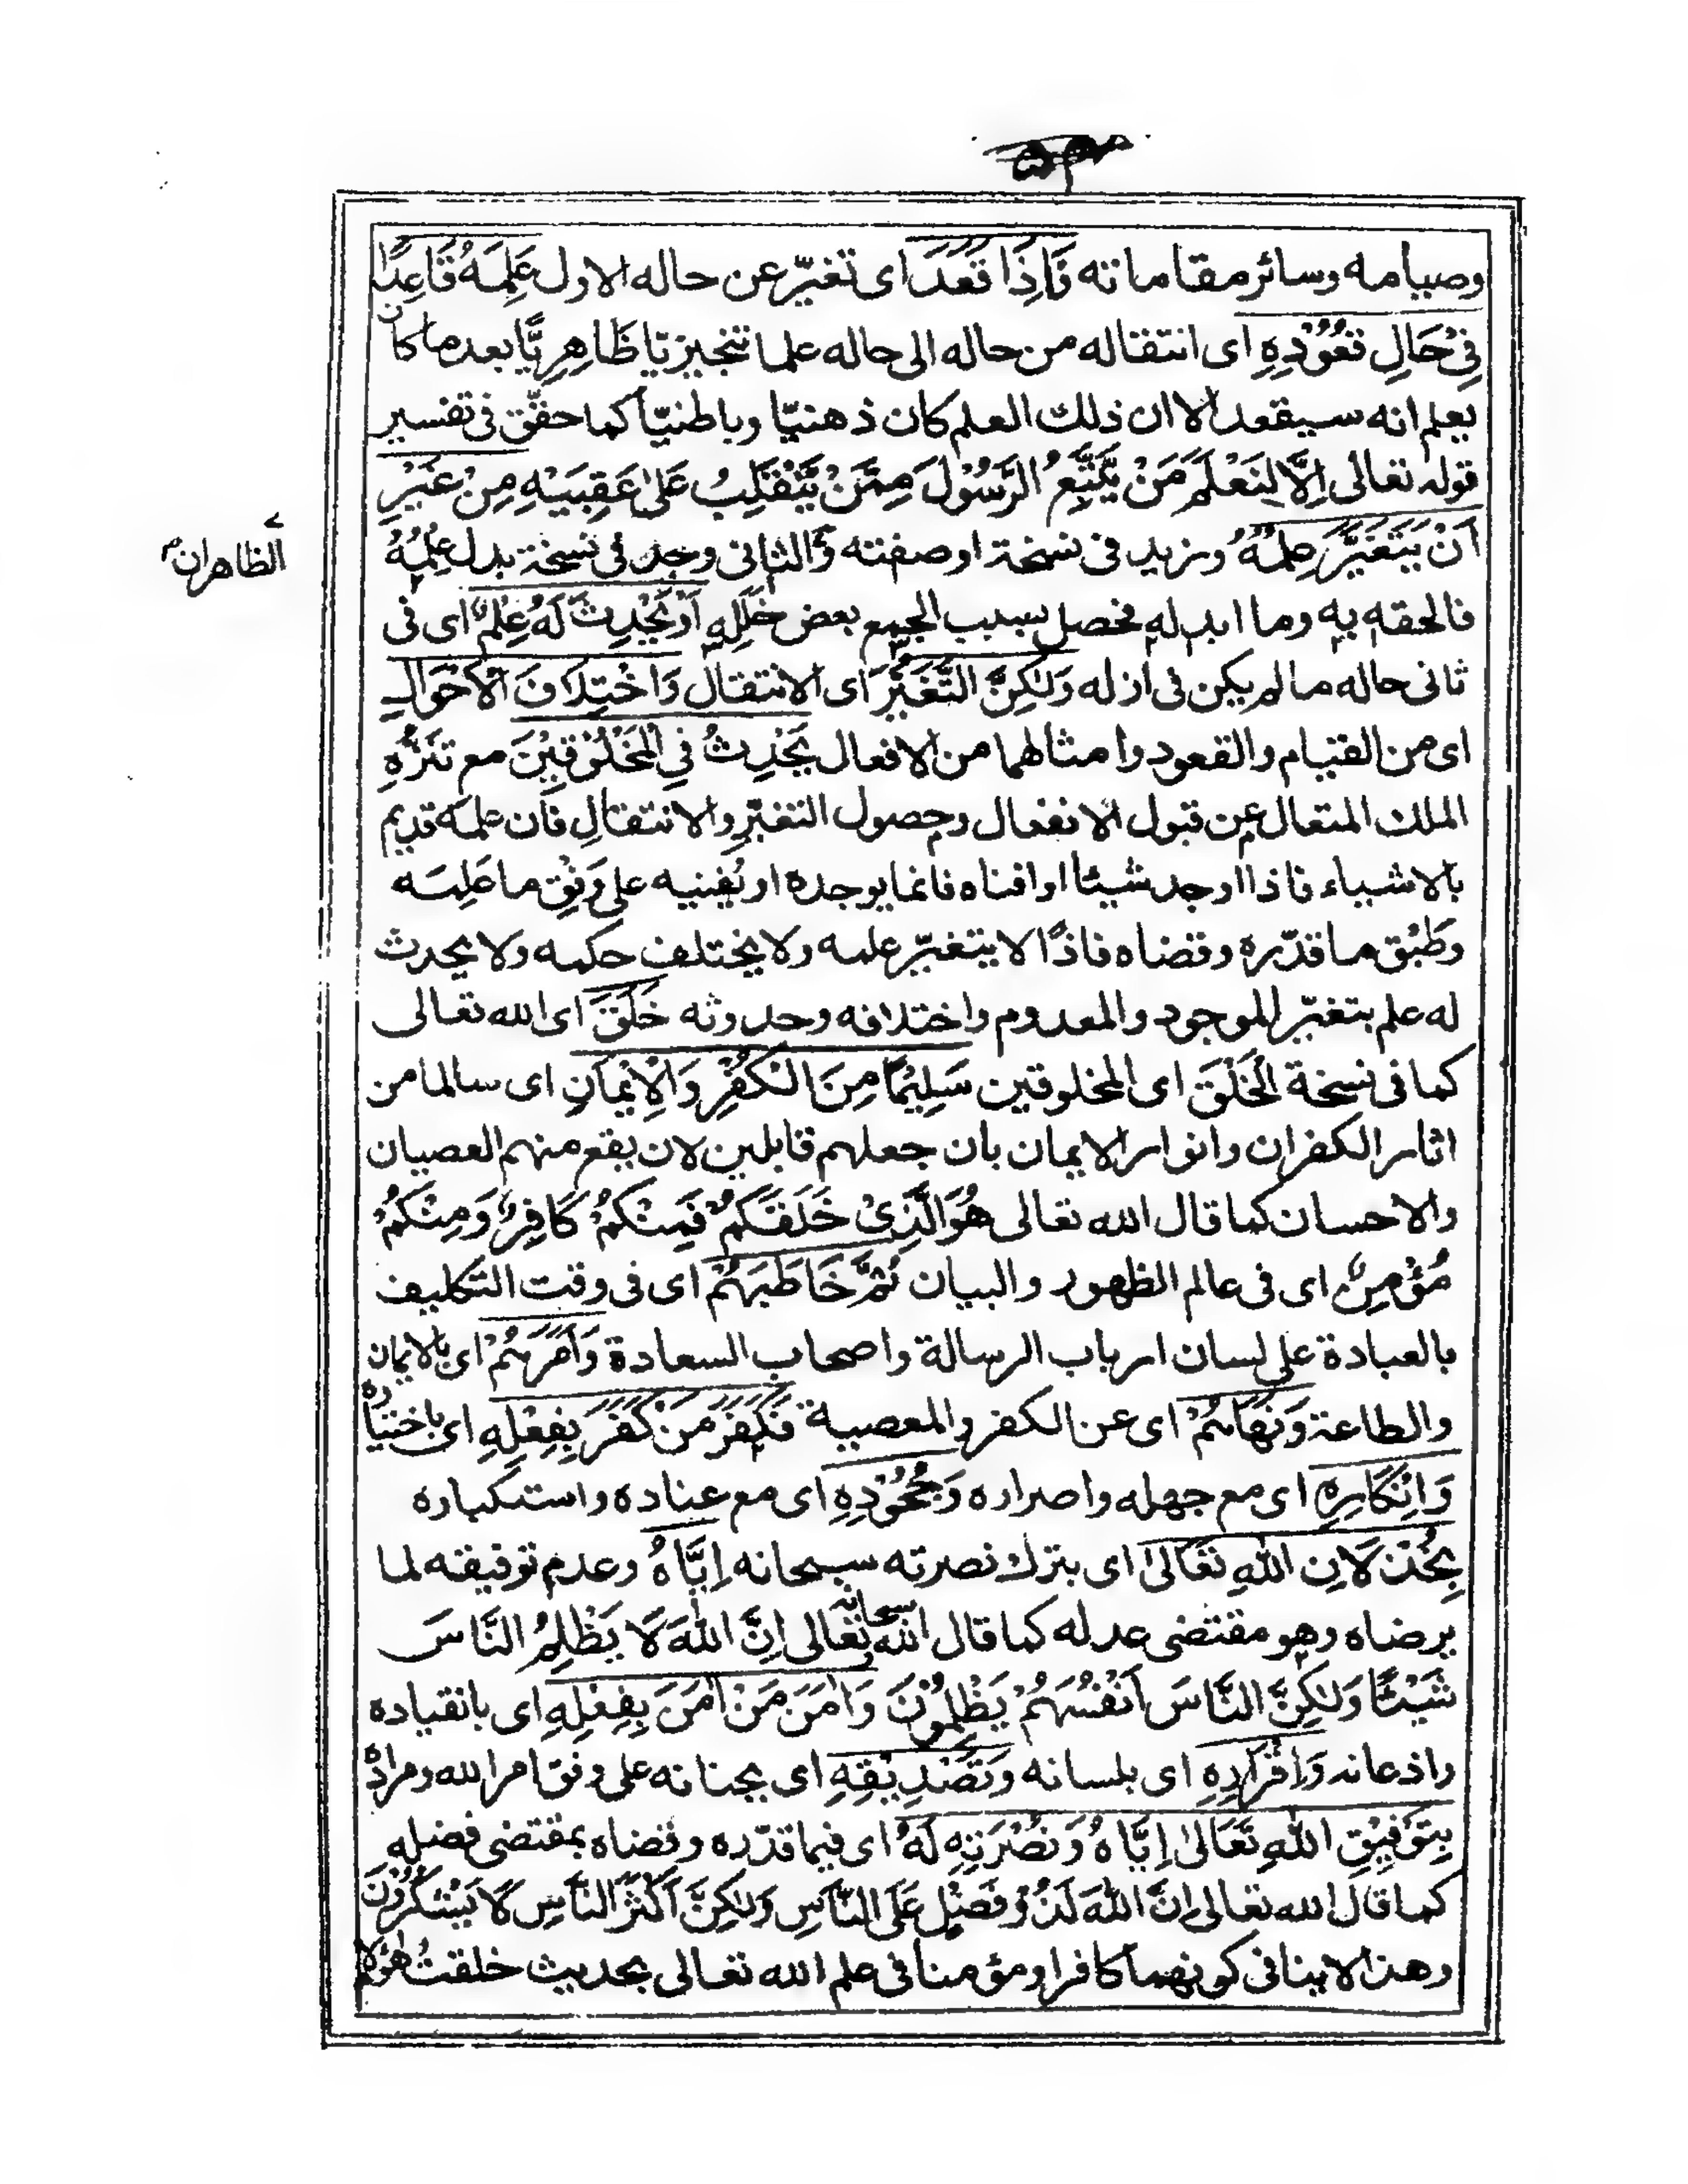 وصيامه وسائر مقاماته فَاِذَا قَعَدَ اى تغيّر عن حاله الاول عَلِمَهُ قَاعِدًا
فِيْ حَالِ قُعُوْدِهِ اى انتقاله من حاله الى حاله علما تنجيزيّا ظَاهِرِيًّا بعد ما كان
يعلم انه سيقعد الا ان ذلك العلم كان ذهنيّا وباطنيّا كما حقّق فى تفسير
قوله تعالى اِلَّا لِنَعْلَمَ مَنْ يَّتَّبِعُ الرَّسُوْلَ مِمَّنْ يَّنْقَلِبُ عَلىٰ عَقِبَيْهِ مِنْ غَيْرِ
اَنْ يَتَغَيَّرَ عِلْمُهُ وزيد فى نسخة او صفته والثانى وجد فى نسخة بدل عِلْمُهُ
الظاهران
فالحقه به وما ابدله فحصل بسبب الجمع بعض خَلَلِهِ اَوْ يَحْدِثَ لَهُ عِلْمٌ اى فى
ثانى حاله ما لم يكن فى ازله وَلٰكِنَّ التَّغَيُّرَ اى الانتقال وَاخْتِلَافَ الْاَحْوَالِ
اى من القيام والقعود وامثالهما من الافعال يَحْدِثُ فِي الْمَخْلُوْقِيْنَ مع تَنَزُّهِ
الملك المتعال عن قبول الانفعال وحصول التغيّر والانتقال فان علمه قديم
بالاشياء فاذا اوجد شيئا او افناه فانما يوجده او يُفنيه على وَفْقِ ما عَلِمَه
وطِبْق ما قدّره وقضاه فاذًا لا يتغيّر علمه ولا يختلف حكمه ولا يحدث
له علم بتغيّر الموجود والمعدوم واختلافه وحدوثه خَلَقَ اى الله تعالى
كما فى نسخة الْخَلْقَ اى المخلوقين سَلِيْمًا مِنَ الْكُفْرِ وَالْاِيْمَانِ اى سالما من
اثار الكفران وانوار الايمان بان جعلهم قابلين لان يقع منهم العصيان
والاحسان كما قال الله تعالى هُوَ الَّذِىْ خَلَقَكُمْ فَمِنْكُمْ كَافِرٌ وَمِنْكُمْ
مُؤْمِنٌ اى فى عالم الظهور والبيان ثُمَّ خَاطَبَهُمْ اى فى وقت التكليف
بالعبادة على لسان ارباب الرسالة واصحاب السعادة وَاَمَرَهُمْ اى بالايمان
والطاعة وَنَهَاهُمْ اى عن الكفر والمعصية فَكَفَرَ مَنْ كَفَرَ بِفِعْلِهِ اى باختياره
وَاِنْكَارِهِ اى مع جهله واصراره وَجُحُوْدِهِ اى مع عناده واستكباره
بِخُذْلَانِ اللهِ تَعَالىٰ اى بترك نصرته سبحانه اِيَّاهُ وعدم توفيقه لما
يرضاه وهو مقتضى عدله كما قال الله سبحانه وتعالى اِنَّ اللهَ لَا يَظْلِمُ النَّاسَ
شَيْئًا وَلٰكِنَّ النَّاسَ اَنْفُسَهُمْ يَظْلِمُوْنَ وَاٰمَنَ مَنْ اٰمَنَ بِفِعْلِهِ اى بانقياده
واذعانه وَاِقْرَارِهِ اى بلسانه وَتَصْدِيْقِهِ اى بجنانه على وفق امر الله ومراده
بِتَوْفِيْقِ اللهِ تَعَالىٰ اِيَّاهُ وَنُصْرَتِهِ لَهُ اى فيما قدّره وقضاه بمقتضى فضله
كما قال الله تعالى اِنَّ اللهَ لَذُوْ فَضْلٍ عَلَى النَّاسِ وَلٰكِنَّ اَكْثَرَ النَّاسِ لَا يَشْكُرُوْنَ
وهذا لاينافى كونهما كافرا ومؤمنا فى علم الله تعالى بحديث خلقتُ هٰؤلاء